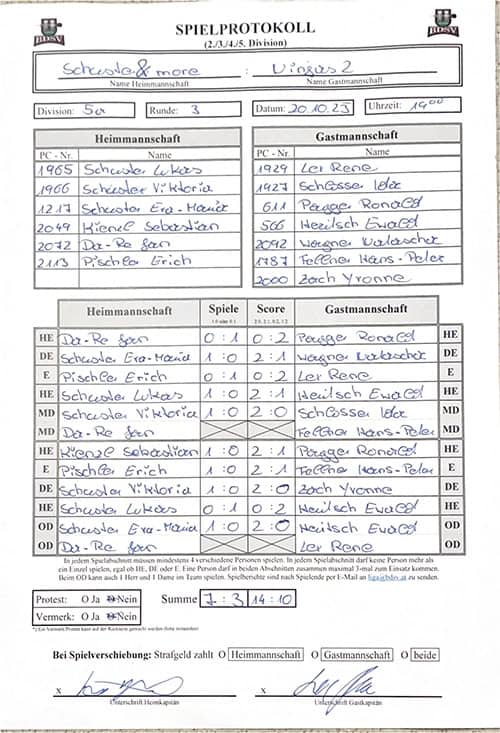 BDSV
SPIELPROTOKOLL
(2./3./4./5. Division)
BDSV
Schuster & more : Vingas 2
Name Heimmannschaft Name Gastmannschaft
Division: 5a Runde: 3 Datum: 20.10.23 Uhrzeit: 19⁰⁰
Heimmannschaft
PC - Nr. Name
1965 Schuster Lukas
1966 Schuster Viktoria
1217 Schuster Eva-Maria
2049 Kienzl Sebastian
2072 Da-Re Jan
2113 Pischler Erich
Gastmannschaft
PC - Nr. Name
1929 Ler Rene
1927 Schlosser Ida
611 Pauger Ronald
566 Heritsch Ewald
2092 Wagner
1787 Fellner Hans-Peter
2000 Zach Yvonne
Heimmannschaft Spiele Score Gastmannschaft
1:0 oder 0:1 2:0, 2:1, 0:2, 1:2
HE Da-Re Jan 0:1 0:2 Pauger Ronald HE
DE Schuster Eva-Maria 1:0 2:1 Wagner DE
E Pischler Erich 0:1 0:2 Ler Rene E
HE Schuster Lukas 1:0 2:1 Heritsch Ewald HE
MD Schuster Viktoria 1:0 2:0 Schlosser Ida MD
MD Da-Re Jan Fellner Hans-Peter MD
HE Kienzl Sebastian 1:0 2:1 Pauger Ronald HE
E Pischler Erich 1:0 2:1 Fellner Hans-Peter E
DE Schuster Viktoria 1:0 2:0 Zach Yvonne DE
HE Schuster Lukas 0:1 0:2 Heritsch Ewald HE
OD Schuster Eva-Maria 1:0 2:0 Heritsch Ewald OD
OD Da-Re Jan Ler Rene OD
In jedem Spielabschnitt müssen mindestens 4 verschiedene Personen spielen. In jedem Spielabschnitt darf keine Person mehr als
ein Einzel spielen, egal ob HE, DE oder E. Eine Person darf in beiden Abschnitten zusammen maximal 3-mal zum Einsatz kommen.
Beim OD kann auch 1 Herr und 1 Dame im Team spielen. Spielberichte sind nach Spielende per E-Mail an liga@bdsv.at zu senden.
Protest: O Ja O Nein Summe 7:3 14:10
Vermerk: O Ja O Nein
Bei Spielverschiebung: Strafgeld zahlt O Heimmannschaft O Gastmannschaft O beide
x x
Unterschrift Heimkapitän Unterschrift Gastkapitän